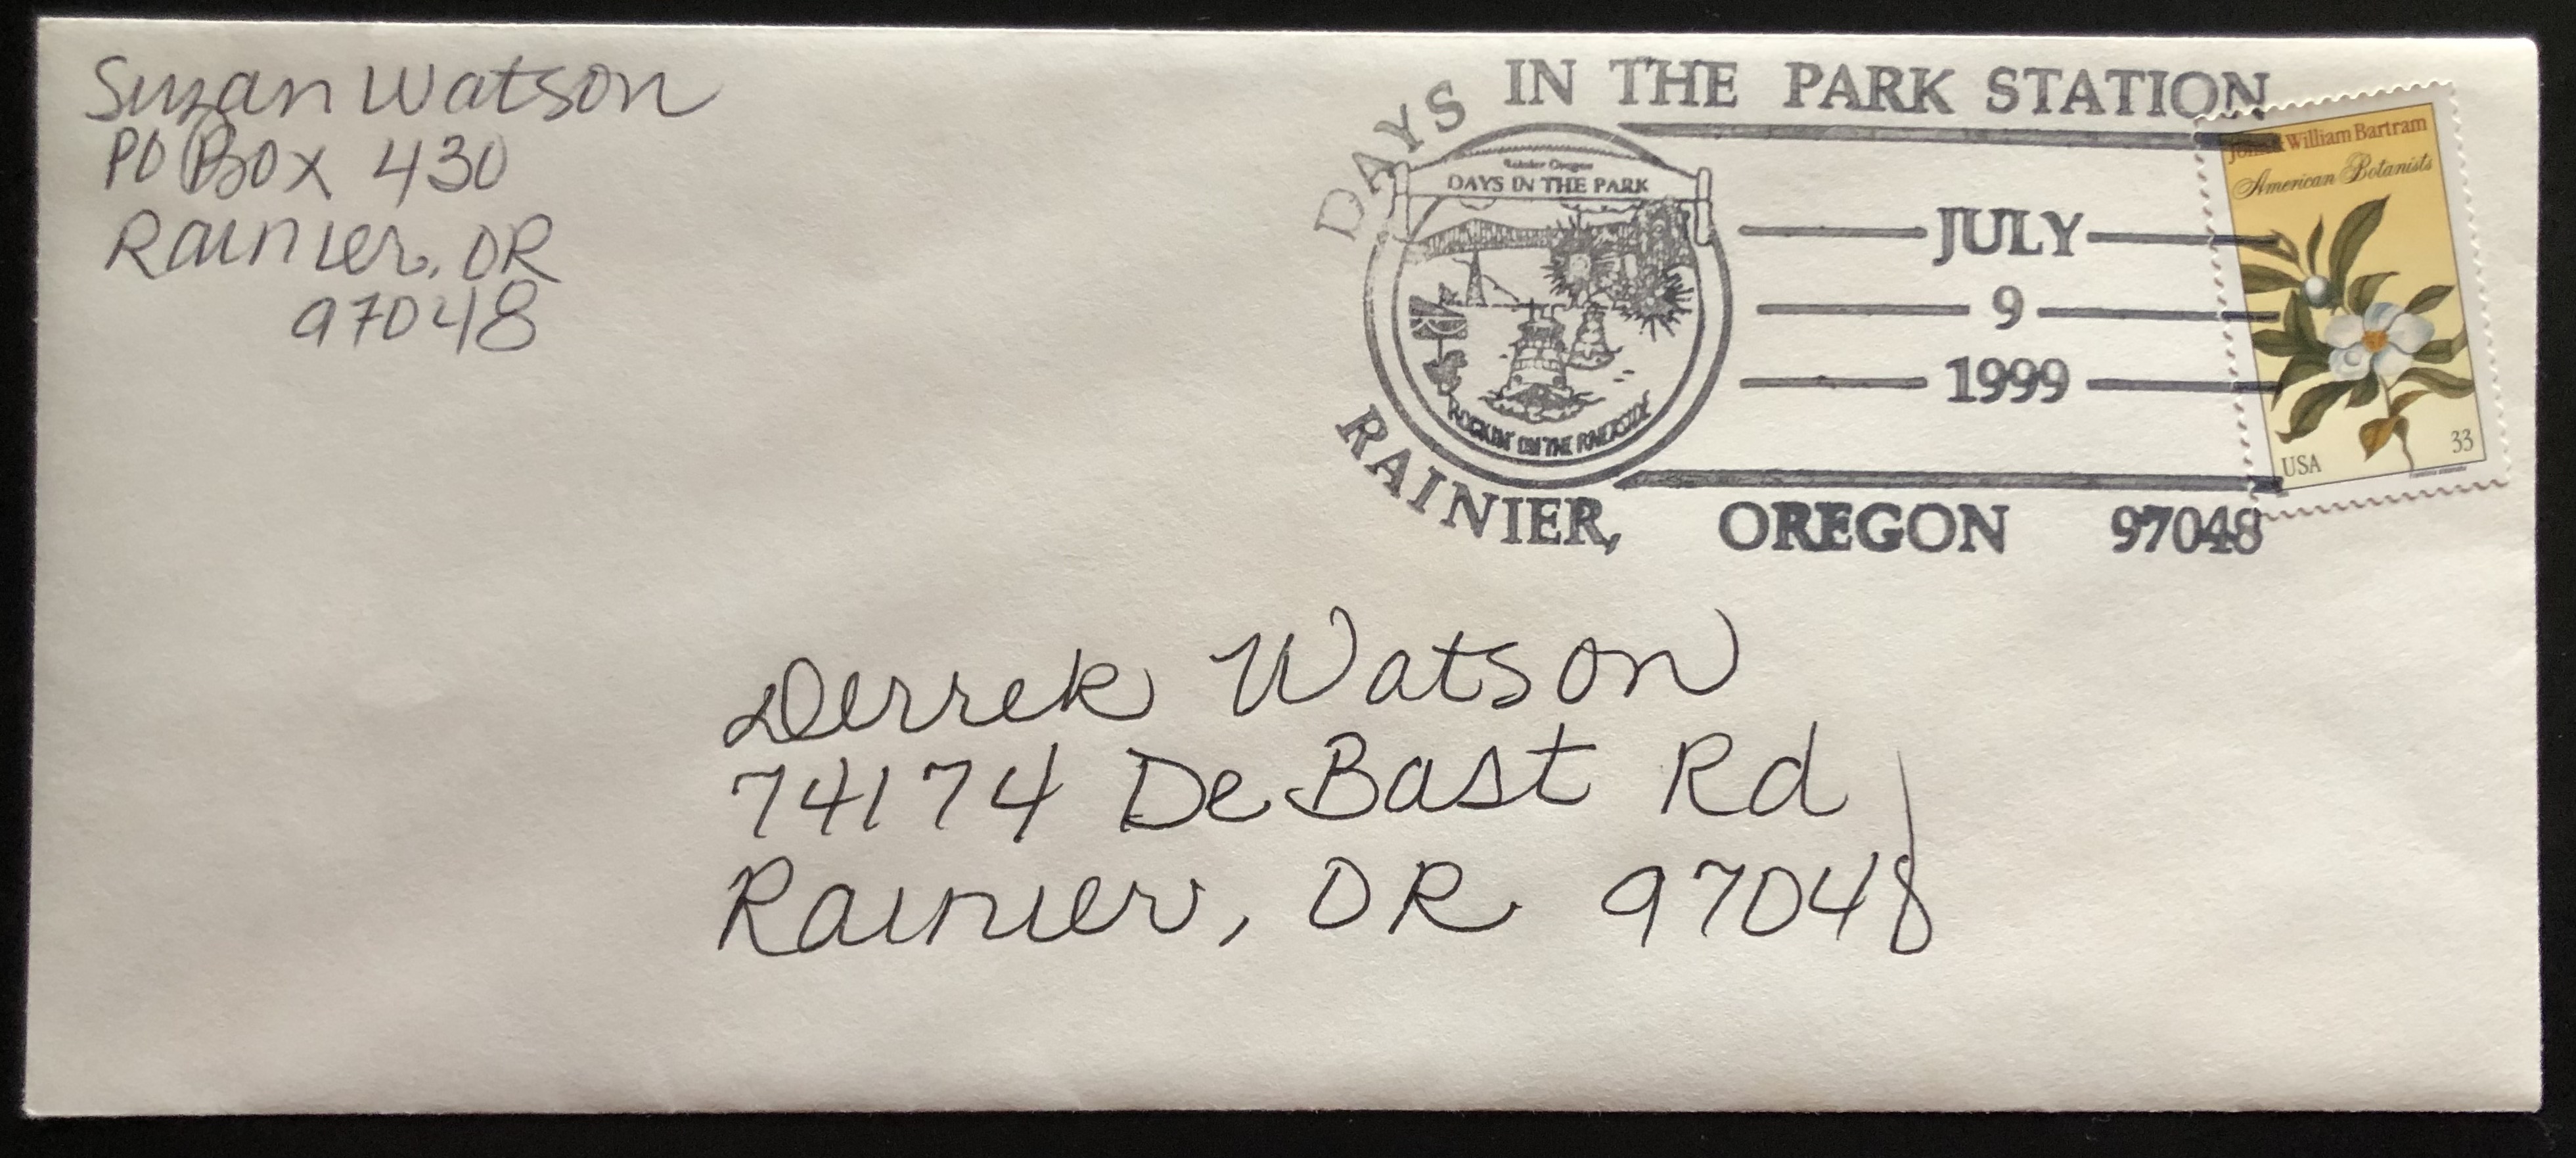 Suzan Watson
PO Box 430
Rainier, OR
97048
DAYS IN THE PARK STATION
Rainier Oregon
DAYS IN THE PARK
ROCKIN' ON THE RIVERSIDE
JULY
9
1999
RAINIER, OREGON 97048
John & William Bartram
American Botanists
33
USA
Derrek Watson
74174 DeBast Rd
Rainier, OR 97048